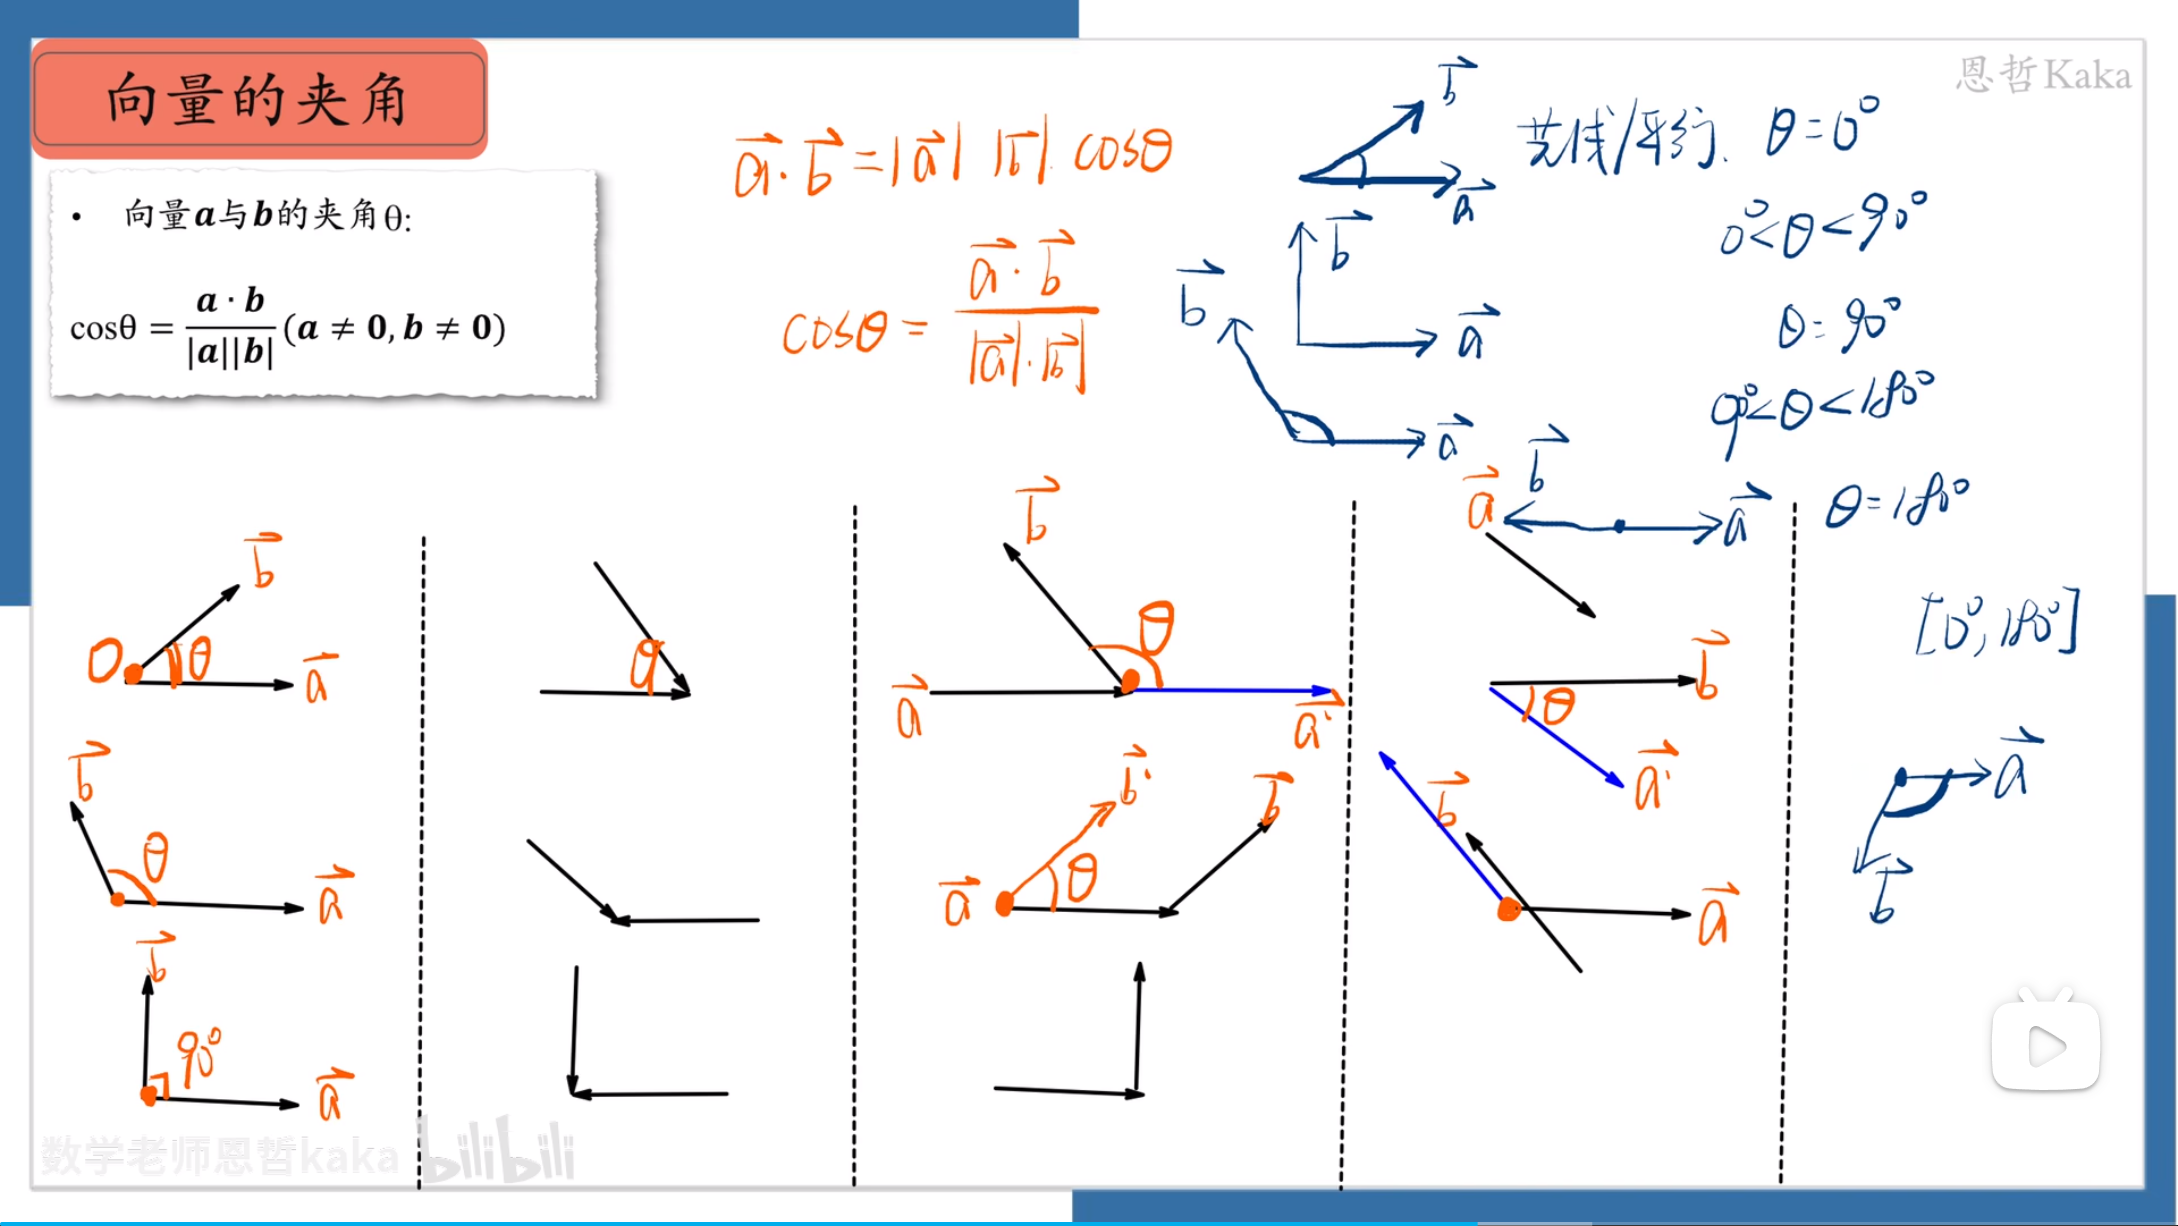 向量的夹角
恩哲Kaka
• 向量a与b的夹角θ:
cosθ = a · b / |a||b| (a ≠ 0, b ≠ 0)
a⃗·b⃗ = |a⃗| |b⃗| cosθ
cosθ = a⃗·b⃗ / |a⃗|·|b⃗|
b⃗
a⃗
共线/平行. θ=0°
0°<θ<90°
b⃗
a⃗
θ=90°
b⃗
a⃗
90°<θ<180°
b⃗
a⃗
θ=180°
[0°, 180°]
a⃗
b⃗
b⃗
O
θ
a⃗
b⃗
θ
a⃗
b⃗
90°
a⃗
θ
b⃗
θ
a⃗
a⃗'
b⃗'
b⃗
a⃗
θ
a⃗
b⃗
θ
a⃗'
b⃗
a⃗
数学老师恩哲kaka
bilibili